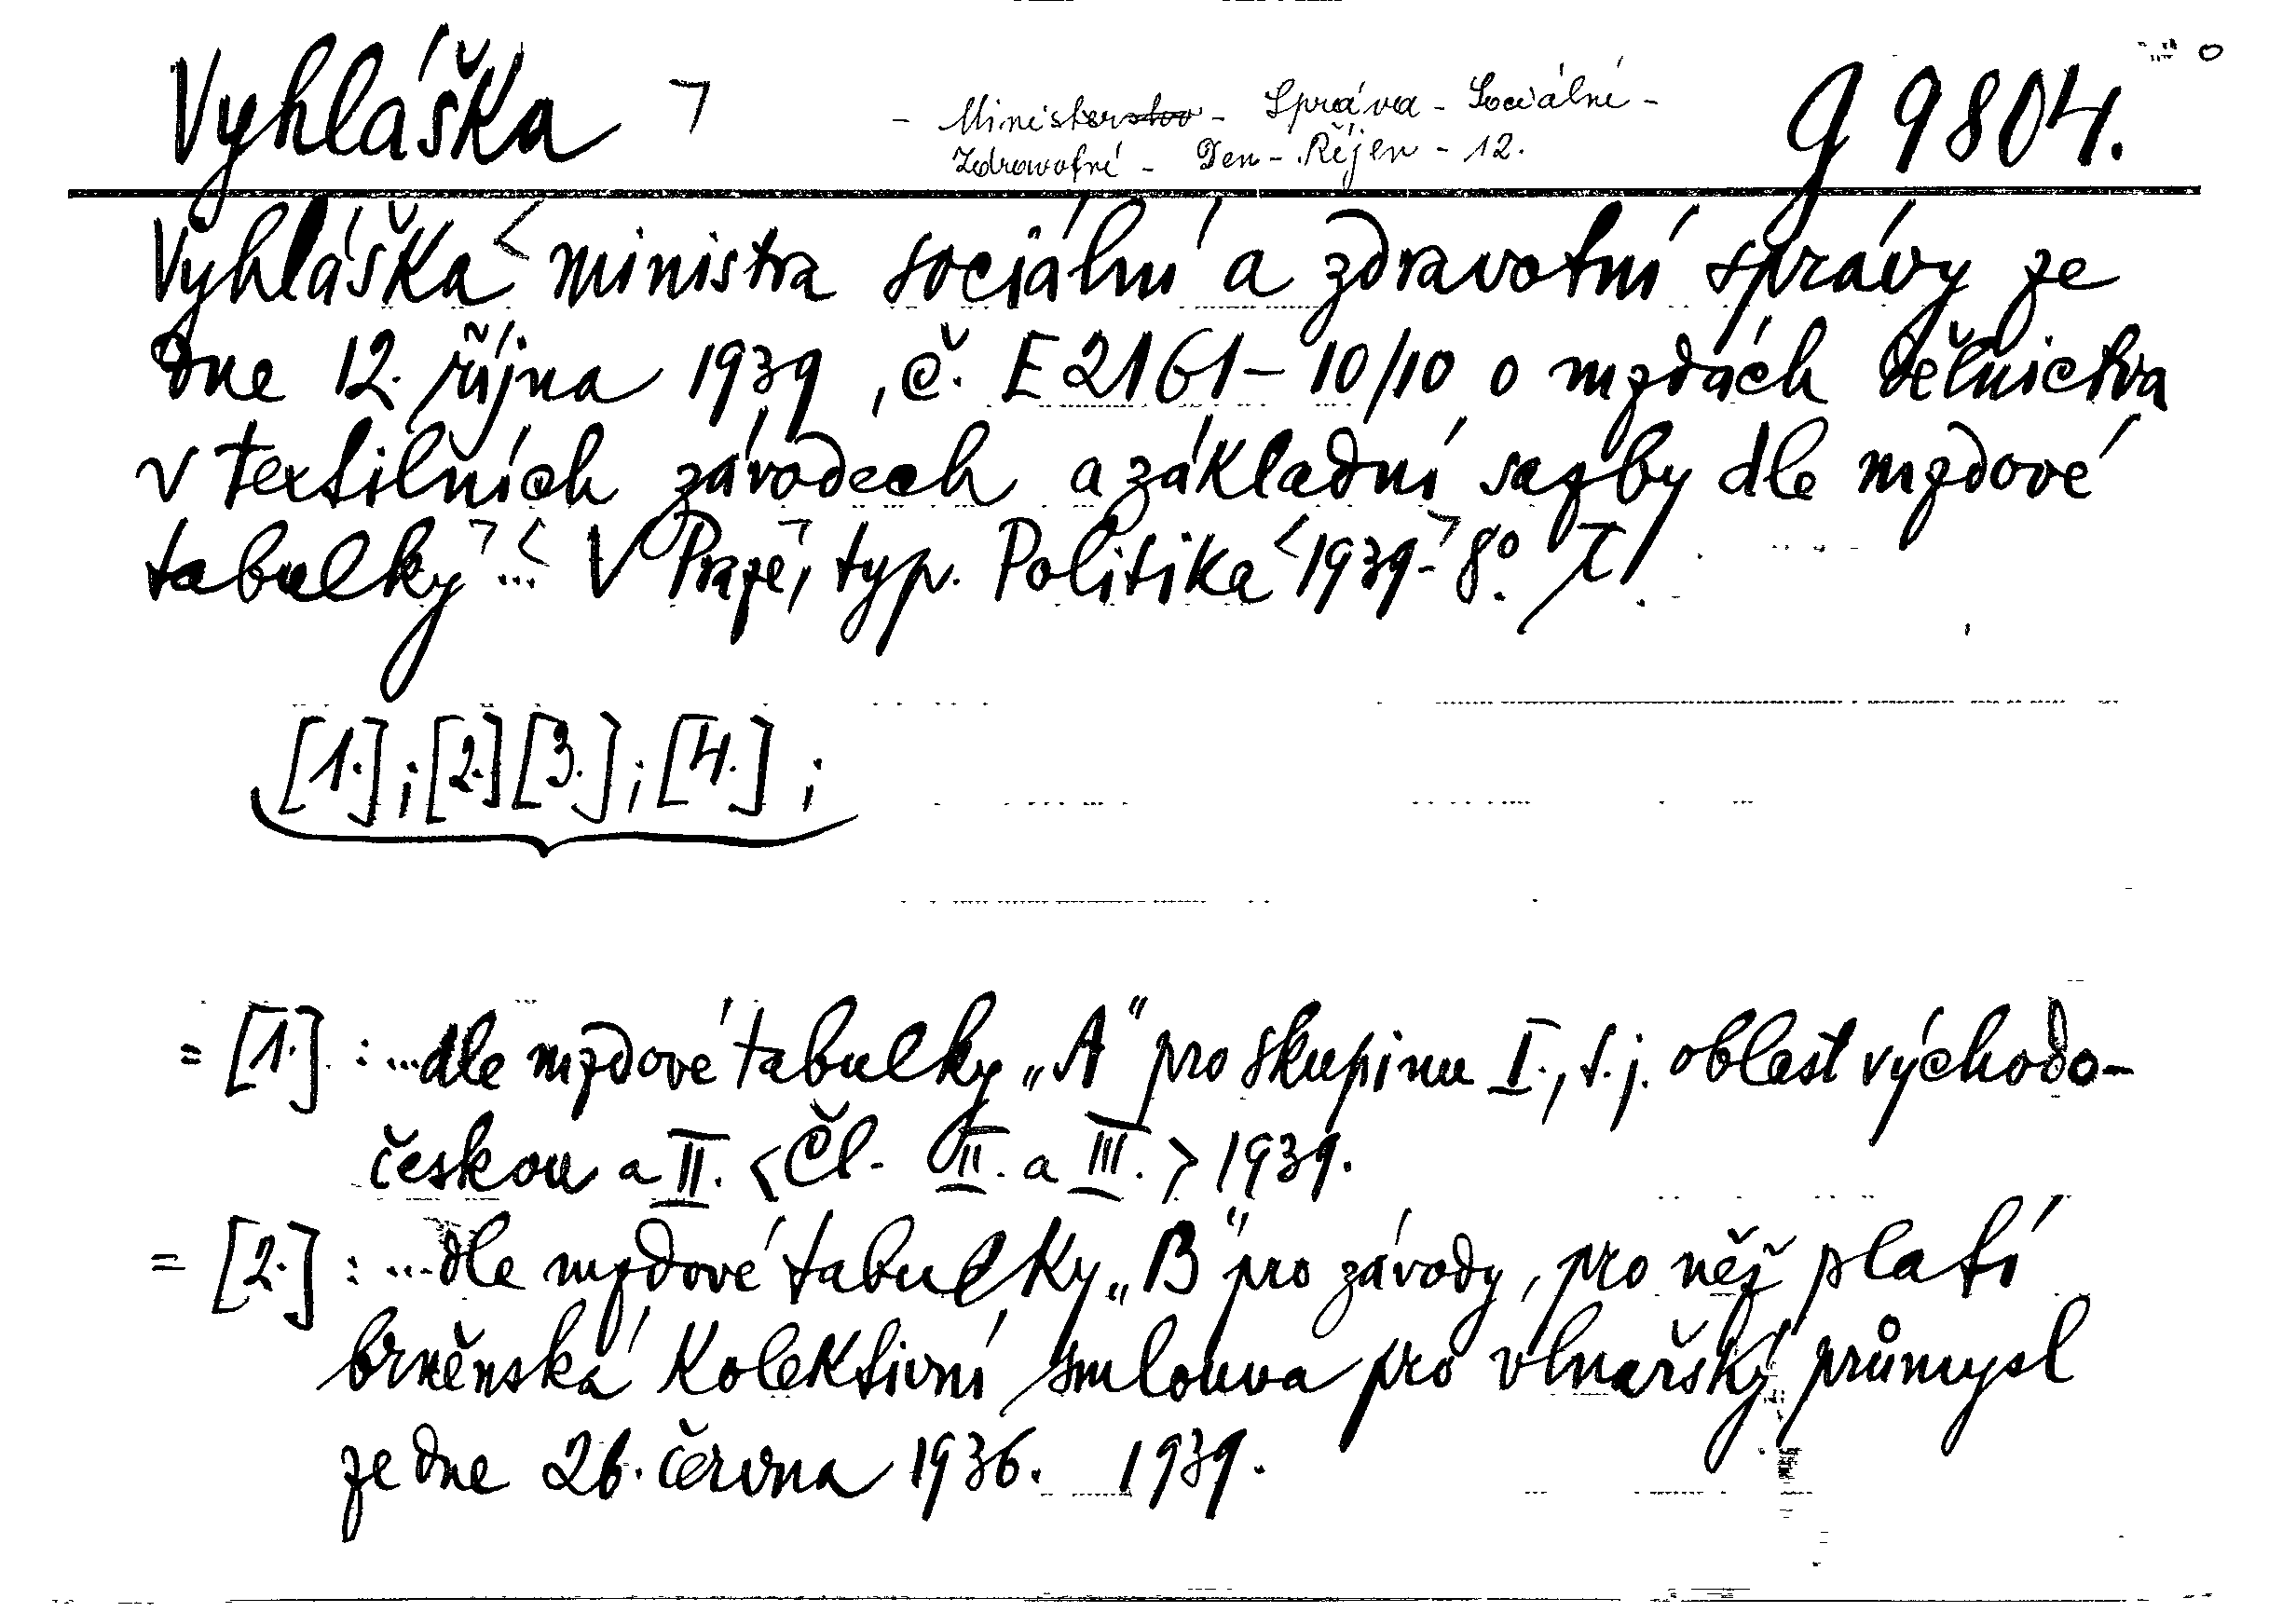 Vyhláška ㄱ - Ministerstvo - Správa - Sociálně - g 9804.
Zdravotně - Den - Říjen - 12.
Vyhláška < ministra sociální a zdravotní správy ze
dne 12. října 1939, č. E 2161-10/10 o mzdách dělnictva
v textilních závodech a základní sazby dle mzdové
tabulky > < ... V Praze, typ. Politika < 1939. > 8°.
[1.]; [2.] [3.]; [4.];
= [1.] : ...dle mzdové tabulky „A“ pro skupinu I., t.j. oblast východo-
českou a II. <Čl. II. a III.> 1939.
= [2.] : ...dle mzdové tabulky „B“ pro závody, pro něž platí
brněnská kolektivní smlouva pro vlnařský průmysl
ze dne 26. června 1936. 1939.